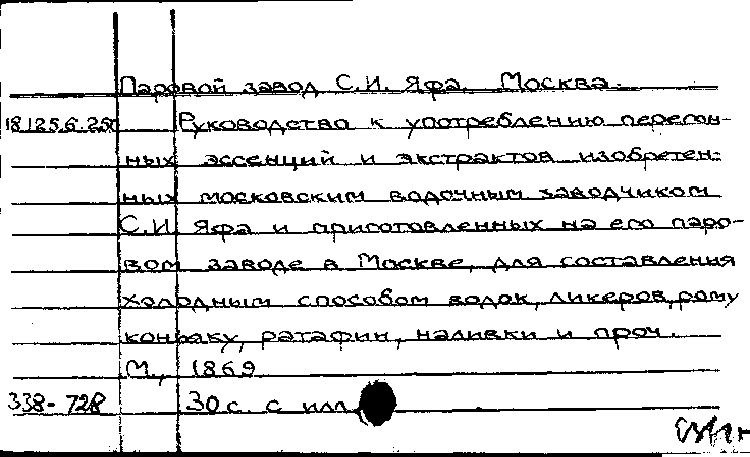 Паровой завод С.И. Яфа. Москва.
18.125.6.250 Руководство к употреблению перегон-
ных эссенций и экстрактов изобретен-
ных московским водочным заводчиком
С.И. Яфа и приготовленных на его паро-
вом заводе в Москве, для составления
холодным способом водок, ликеров, рому
коньяку, ратафии, наливки и проч.
М., 1869
338-728 30 с. с илл.